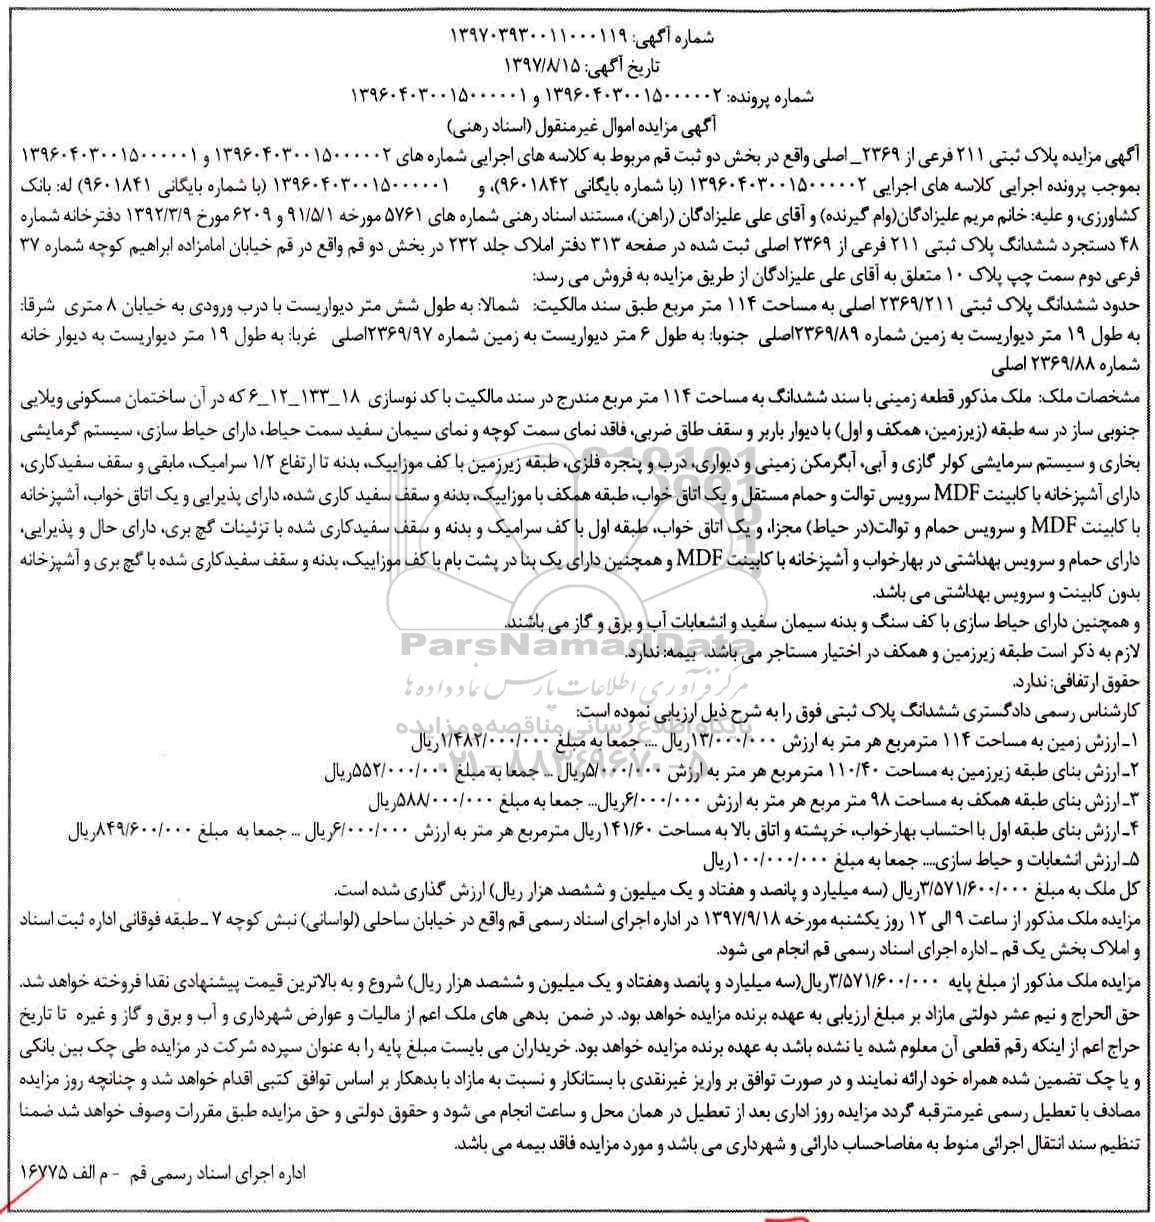 شماره آگهی: ۱۳۹۷۰۳۹۳۰۰۱۱۰۰۰۱۱۹
تاریخ آگهی: ۱۳۹۷/۸/۱۵
شماره پرونده: ۱۳۹۶۰۴۰۳۰۰۱۵۰۰۰۰۰۲ و ۱۳۹۶۰۴۰۳۰۰۱۵۰۰۰۰۰۱
آگهی مزایده اموال غیرمنقول (اسناد رهنی)
آگهی مزایده پلاک ثبتی ۲۱۱ فرعی از ۲۳۶۹_ اصلی واقع در بخش دو ثبت قم مربوط به کلاسه های اجرایی شماره های ۱۳۹۶۰۴۰۳۰۰۱۵۰۰۰۰۰۲ و ۱۳۹۶۰۴۰۳۰۰۱۵۰۰۰۰۰۱
بموجب پرونده اجرایی کلاسه های اجرایی ۱۳۹۶۰۴۰۳۰۰۱۵۰۰۰۰۰۲ (با شماره بایگانی ۹۶۰۱۸۴۲)، و ۱۳۹۶۰۴۰۳۰۰۱۵۰۰۰۰۰۱ (با شماره بایگانی ۹۶۰۱۸۴۱) له: بانک
کشاورزی، و علیه: خانم مریم علیزادگان(وام گیرنده) و آقای علی علیزادگان (راهن)، مستند اسناد رهنی شماره های ۵۷۶۱ مورخه ۹۱/۵/۱ و ۶۲۰۹ مورخ ۱۳۹۲/۳/۹ دفترخانه شماره
۴۸ دستجرد ششدانگ پلاک ثبتی ۲۱۱ فرعی از ۲۳۶۹ اصلی ثبت شده در صفحه ۳۱۳ دفتر املاک جلد ۲۳۲ در بخش دو قم واقع در قم خیابان امامزاده ابراهیم کوچه شماره ۳۷
فرعی دوم سمت چپ پلاک ۱۰ متعلق به آقای علی علیزادگان از طریق مزایده به فروش می رسد:
حدود ششدانگ پلاک ثبتی ۲۳۶۹/۲۱۱ اصلی به مساحت ۱۱۴ متر مربع طبق سند مالکیت: شمالا: به طول شش متر دیواریست با درب ورودی به خیابان ۸ متری شرقا:
به طول ۱۹ متر دیواریست به زمین شماره ۲۳۶۹/۸۹اصلی جنوبا: به طول ۶ متر دیواریست به زمین شماره ۲۳۶۹/۹۷اصلی غربا: به طول ۱۹ متر دیواریست به دیوار خانه
شماره ۲۳۶۹/۸۸ اصلی
مشخصات ملک: ملک مذکور قطعه زمینی با سند ششدانگ به مساحت ۱۱۴ متر مربع مندرج در سند مالکیت با کد نوسازی ۱۸_۱۳۳_۱۲_۶ که در آن ساختمان مسکونی ویلایی
جنوبی ساز در سه طبقه (زیرزمین، همکف و اول) با دیوار باربر و سقف طاق ضربی، فاقد نمای سمت کوچه و نمای سیمان سفید سمت حیاط، دارای حیاط سازی، سیستم گرمایشی
بخاری و سیستم سرمایشی کولر گازی و آبی، آبگرمکن زمینی و دیواری، درب و پنجره فلزی، طبقه زیرزمین با کف موزاییک، بدنه تا ارتفاع ۱/۲ سرامیک، مابقی و سقف سفیدکاری،
دارای آشپزخانه با کابینت MDF سرویس توالت و حمام مستقل و یک اتاق خواب، طبقه همکف با موزاییک، بدنه و سقف سفید کاری شده، دارای پذیرایی و یک اتاق خواب، آشپزخانه
با کابینت MDF و سرویس حمام و توالت(در حیاط) مجزا، و یک اتاق خواب، طبقه اول با کف سرامیک و بدنه و سقف سفیدکاری شده با تزئینات گچ بری، دارای حال و پذیرایی،
دارای حمام و سرویس بهداشتی در بهارخواب و آشپزخانه با کابینت MDF و همچنین دارای یک بنا در پشت بام با کف موزاییک، بدنه و سقف سفیدکاری شده با گچ بری و آشپزخانه
بدون کابینت و سرویس بهداشتی می باشد.
و همچنین دارای حیاط سازی با کف سنگ و بدنه سیمان سفید و انشعابات آب و برق و گاز می باشند.
ParsNamadData
لازم به ذکر است طبقه زیرزمین و همکف در اختیار مستاجر می باشد. بیمه: ندارد.
مرکز فرآوری اطلاعات پارس نماد داده ها
حقوق ارتفاقی: ندارد.
کارشناس رسمی دادگستری ششدانگ پلاک ثبتی فوق را به شرح ذیل ارزیابی نموده است:
پایگاه اطلاع رسانی مناقصه و مزایده
۱ـ ارزش زمین به مساحت ۱۱۴ مترمربع هر متر به ارزش ۱۳/۰۰۰/۰۰۰ریال .... جمعا به مبلغ ۱/۴۸۲/۰۰۰/۰۰۰ریال
۰۲۱-۸۸۳۴۹۶۷۰-۵
۲ـ ارزش بنای طبقه زیرزمین به مساحت ۱۱۰/۴۰ مترمربع هر متر به ارزش ۵/۰۰۰/۰۰۰ریال ... جمعا به مبلغ ۵۵۲/۰۰۰/۰۰۰ریال
۳ـ ارزش بنای طبقه همکف به مساحت ۹۸ متر مربع هر متر به ارزش ۶/۰۰۰/۰۰۰ریال... جمعا به مبلغ ۵۸۸/۰۰۰/۰۰۰ریال
۴ـ ارزش بنای طبقه اول با احتساب بهارخواب، خرپشته و اتاق بالا به مساحت ۱۴۱/۶۰ریال مترمربع هر متر به ارزش ۶/۰۰۰/۰۰۰ریال ... جمعا به مبلغ ۸۴۹/۶۰۰/۰۰۰ریال
۵ـ ارزش انشعابات و حیاط سازی.... جمعا به مبلغ ۱۰۰/۰۰۰/۰۰۰ریال
کل ملک به مبلغ ۳/۵۷۱/۶۰۰/۰۰۰ریال (سه میلیارد و پانصد و هفتاد و یک میلیون و ششصد هزار ریال) ارزش گذاری شده است.
مزایده ملک مذکور از ساعت ۹ الی ۱۲ روز یکشنبه مورخه ۱۳۹۷/۹/۱۸ در اداره اجرای اسناد رسمی قم واقع در خیابان ساحلی (لواسانی) نبش کوچه ۷ ـ طبقه فوقانی اداره ثبت اسناد
و املاک بخش یک قم ـ اداره اجرای اسناد رسمی قم انجام می شود.
مزایده ملک مذکور از مبلغ پایه ۳/۵۷۱/۶۰۰/۰۰۰ریال(سه میلیارد و پانصد وهفتاد و یک میلیون و ششصد هزار ریال) شروع و به بالاترین قیمت پیشنهادی نقدا فروخته خواهد شد.
حق الحراج و نیم عشر دولتی مازاد بر مبلغ ارزیابی به عهده برنده مزایده خواهد بود. در ضمن بدهی های ملک اعم از مالیات و عوارض شهرداری و آب و برق و گاز و غیره تا تاریخ
حراج اعم از اینکه رقم قطعی آن معلوم شده یا نشده باشد به عهده برنده مزایده خواهد بود. خریداران می بایست مبلغ پایه را به عنوان سپرده شرکت در مزایده طی چک بین بانکی
و یا چک تضمین شده همراه خود ارائه نمایند و در صورت توافق بر واریز غیرنقدی با بستانکار و نسبت به مازاد با بدهکار بر اساس توافق کتبی اقدام خواهد شد و چنانچه روز مزایده
مصادف با تعطیل رسمی غیرمترقبه گردد مزایده روز اداری بعد از تعطیل در همان محل و ساعت انجام می شود و حقوق دولتی و حق مزایده طبق مقررات وصوف خواهد شد ضمنا
تنظیم سند انتقال اجرائی منوط به مفاصاحساب دارائی و شهرداری می باشد و مورد مزایده فاقد بیمه می باشد.
اداره اجرای اسناد رسمی قم - م الف ۱۶۷۷۵